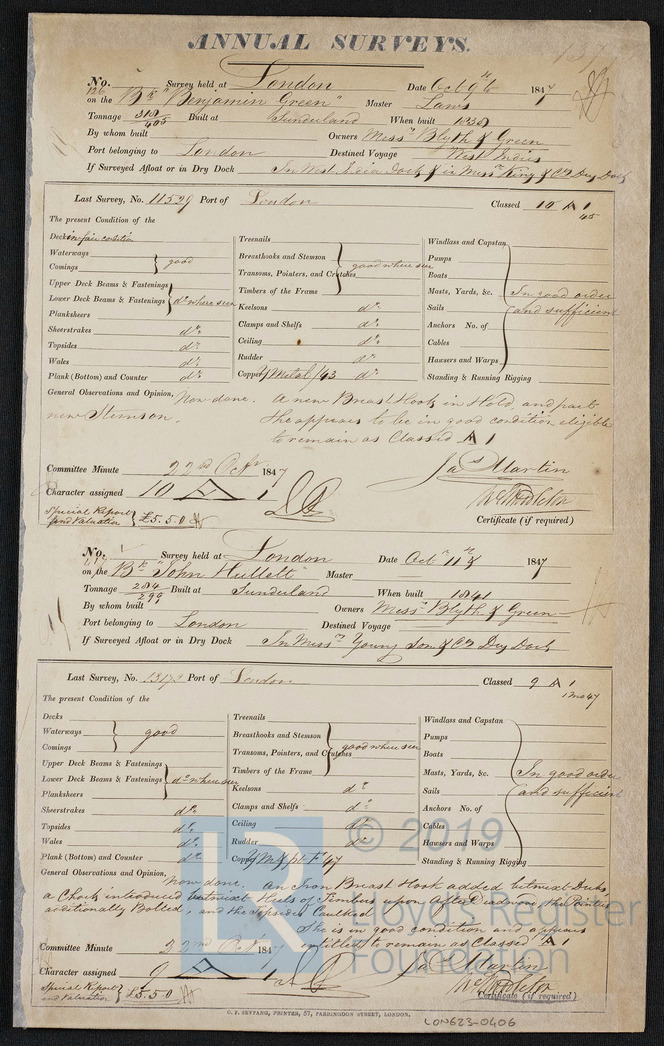 ANNUAL SURVEYS.
137
No. 126 Survey held at London Date Oct 9th 1847
on the Bk "Benjamin Green" Master Laws
Tonnage 318/405 Built at Sunderland When built 1838
By whom built Owners Messrs Blyth & Green
Port belonging to London Destined Voyage West Indies
If Surveyed Afloat or in Dry Dock In West India Dock & in Messrs King & Co Dry Dock
Last Survey, No. 11529 Port of London Classed 10 A 1
45
The present Condition of the
Decks in fair condition
Waterways
Comings } good
Upper Deck Beams & Fastenings
Lower Deck Beams & Fastenings } do where seen
Planksheers
Sheerstrakes do
Topsides do
Wales do
Plank (Bottom) and Counter do
Treenails
Breasthooks and Stemson
Transoms, Pointers, and Crutches } good where seen
Timbers of the Frame
Keelsons do
Clamps and Shelfs do
Ceiling do
Rudder do
Copper Y Metal /43 do
Windlass and Capstan
Pumps
Boats
Masts, Yards, &c. In good order
Sails and sufficient
Anchors No. of
Cables
Hawsers and Warps
Standing & Running Rigging
General Observations and Opinion, Now done. A new Breast Hook in Hold, and part
new Stemson. She appears to be in good condition eligible
to remain as Classed A 1
Jas Martin
Committee Minute 22nd Octr 1847
Character assigned 10 A 1
Special Report
and Valuation } £5.5.0
Certificate (if required)
No. Survey held at London Date Octr 11th 1847
on the Bk "John Hullett" Master
Tonnage 284/299 Built at Sunderland When built 1841
By whom built Owners Messrs Blyth & Green
Port belonging to London Destined Voyage
If Surveyed Afloat or in Dry Dock In Messrs Young Son & Co Dry Dock
Last Survey, No. Port of London Classed 9 A 1
1 Mo 47
The present Condition of the
Decks
Waterways } good
Comings
Upper Deck Beams & Fastenings
Lower Deck Beams & Fastenings } do where seen
Planksheers
Sheerstrakes do
Topsides do
Wales do
Plank (Bottom) and Counter do
Treenails
Breasthooks and Stemson
Transoms, Pointers, and Crutches } good where seen
Timbers of the Frame
Keelsons do
Clamps and Shelfs do
Ceiling do
Rudder do
Copper Y M & pt F 47
Windlass and Capstan
Pumps
Boats
Masts, Yards, &c. In good order
Sails and sufficient
Anchors No. of
Cables
Hawsers and Warps
Standing & Running Rigging
General Observations and Opinion, Now done. An Iron Breast Hook added betwixt Decks,
a Chock introduced betwixt Heels of Timbers upon After Deadwood, the Pointers
additionally Bolted, and the topsides Caulked.
She is in good condition and appears
entitled to remain as Classed A 1
Jas Martin
Committee Minute 22nd Octr 1847
Character assigned 9 A 1
Special Report
and Valuation } £5.5.0
Certificate (if required)
C. F. SEYFANG, PRINTER, 57, FARRINGDON STREET, LONDON.
LON623-0406
LR © 2019
Lloyd's Register
Foundation